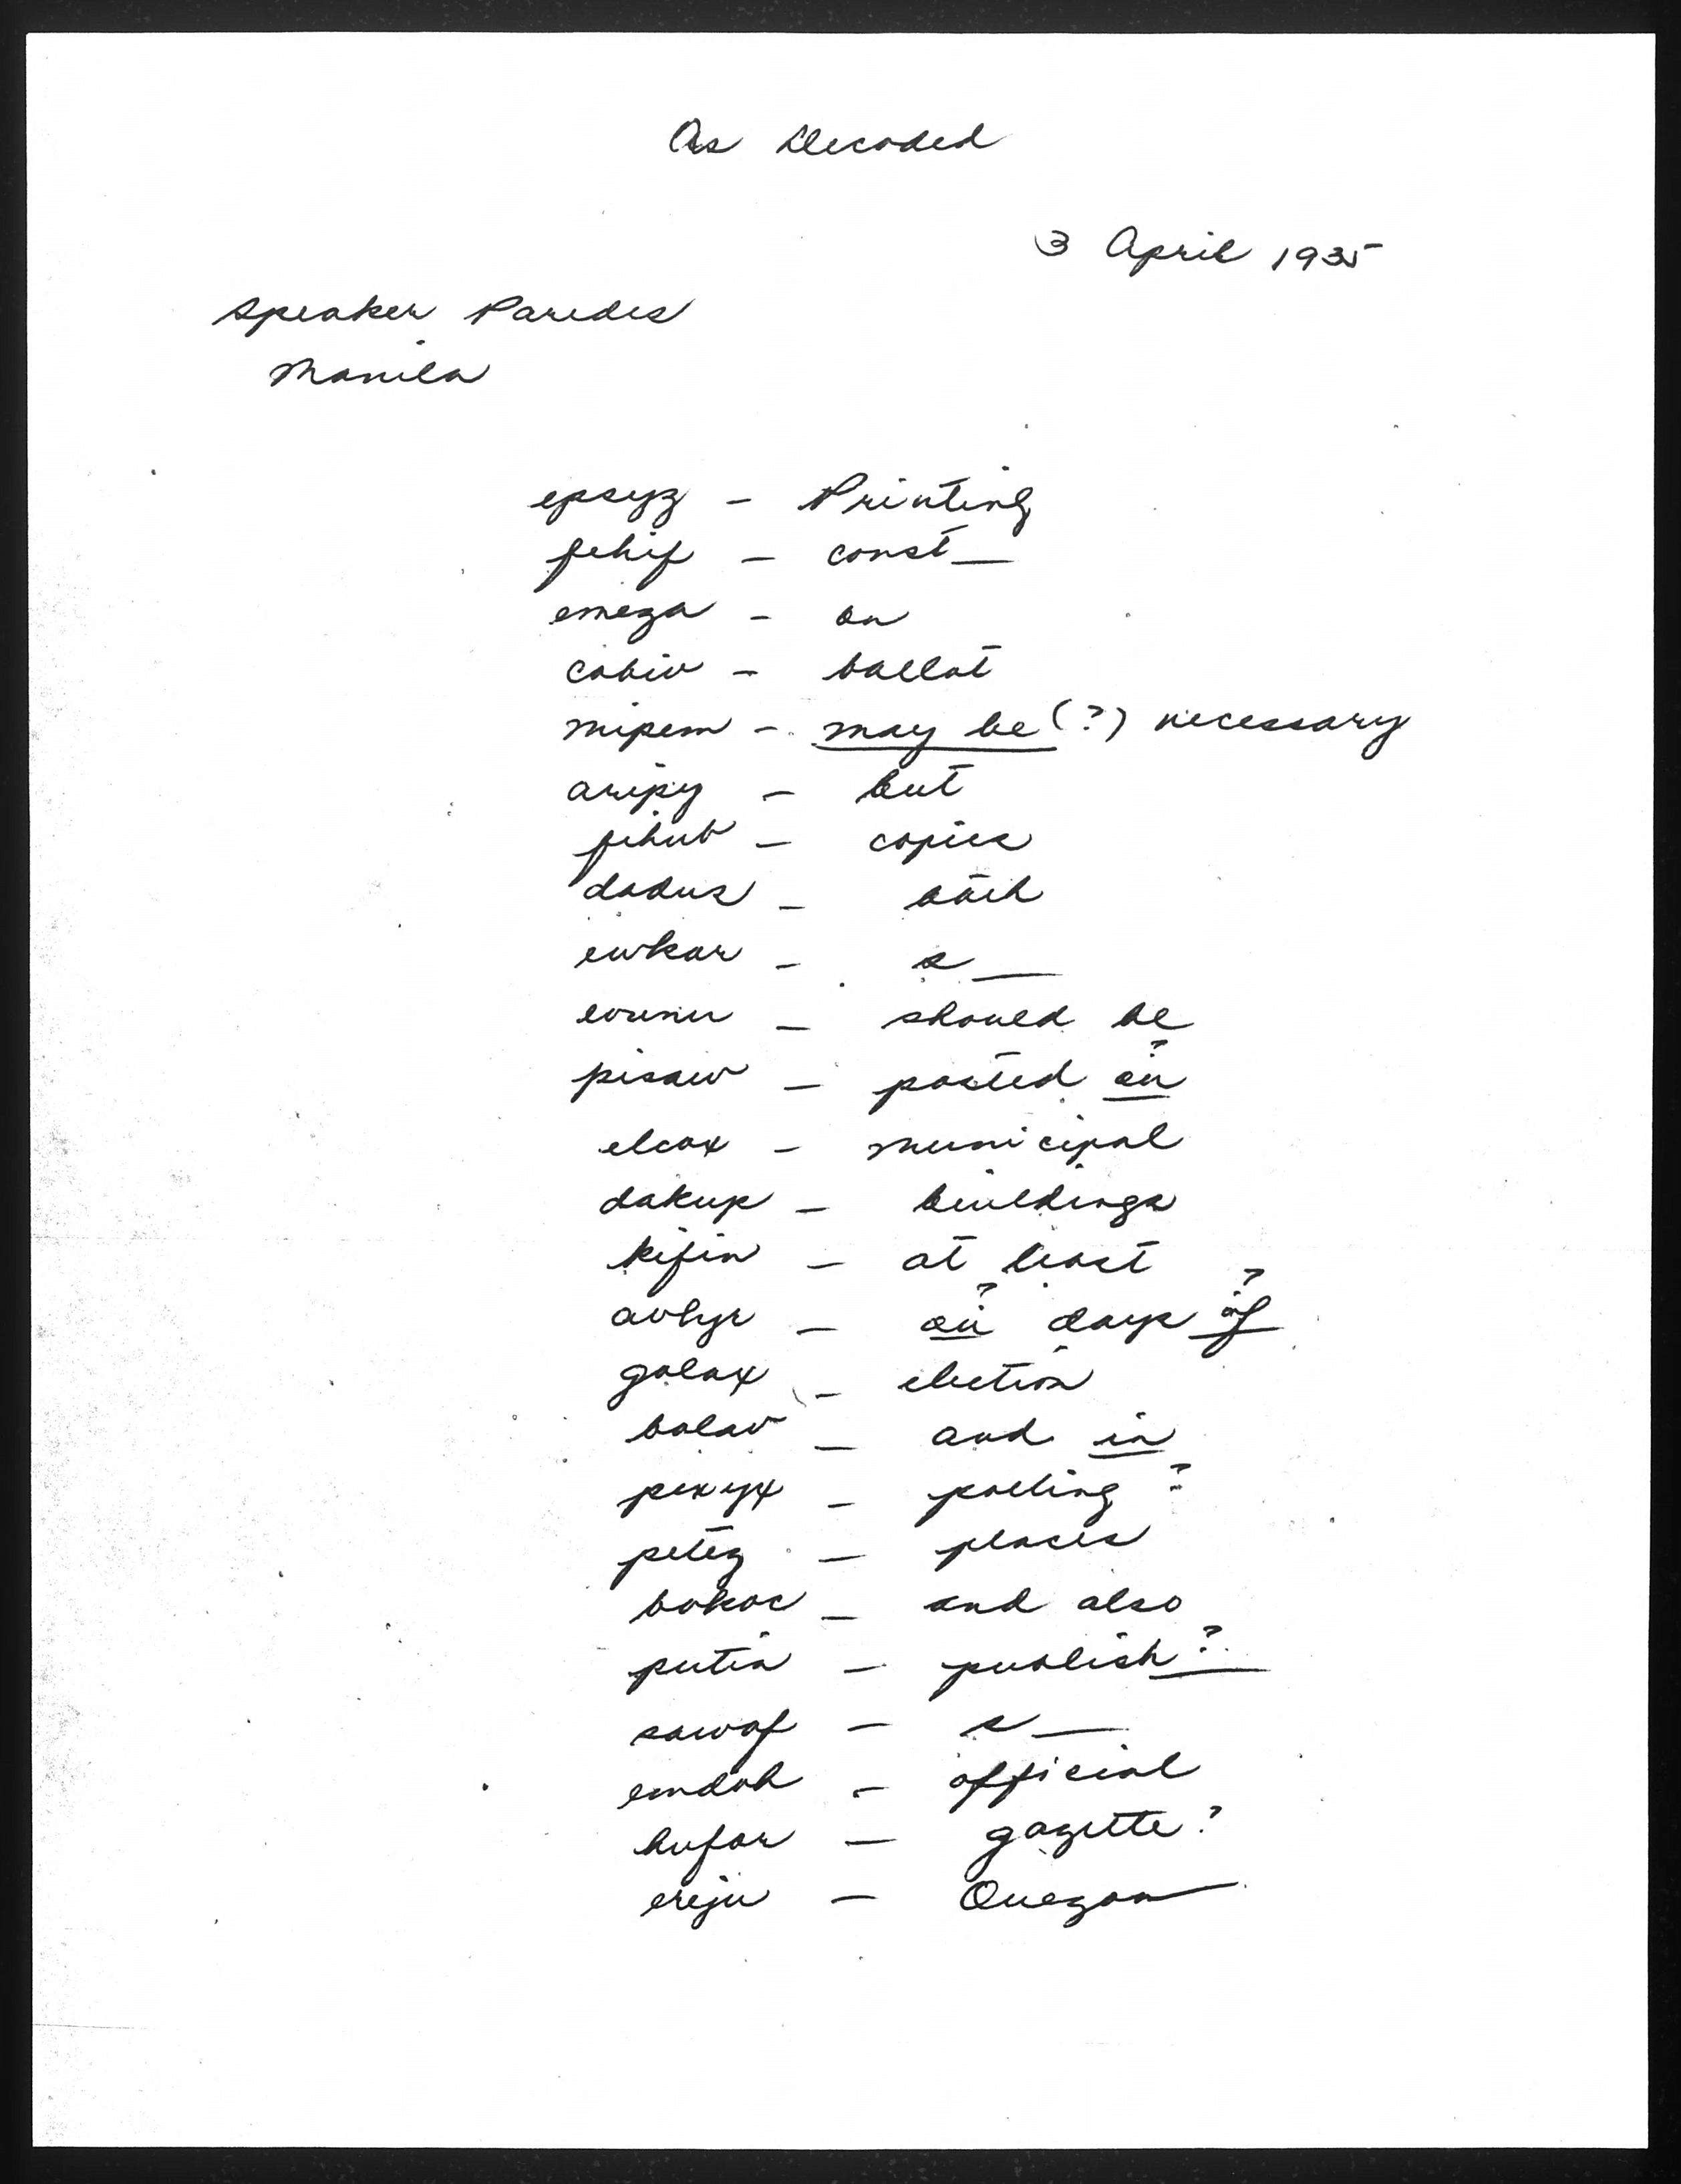 As Decoded
3 April 1935
Speaker Paredes
Manila
epsyz - Printing
fehif - const__
emeza - on
cabiv - ballot
mipem - may be (?) necessary
aripy - but
fihub - copies
dadus - both
eukar - s__
should be
pisaw - posted in ?
elcox - municipal
dakup - buildings
kifin - at least
avbyr - on ? days of ?
galax - election
balav - and in
pexyx - polling ?
petez - places
bokoc - and also
putin - publish ?
sawof - s__
emdoh - official
hufar - gazette ?
ereju - Quezon